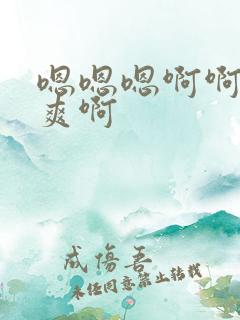 嗯嗯嗯啊啊
爽啊
成伤吾
未经同意禁止转载